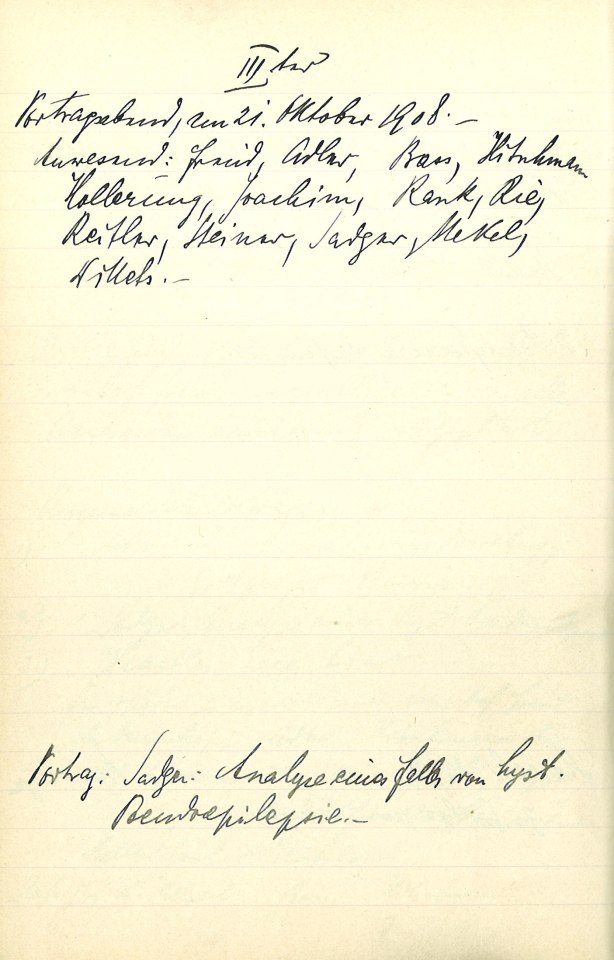 IIIter
Vortragabend, am 21. Oktober 1908.–
Anwesend: Freud, Adler, Bass, Hitschmann
Hollerung, Joachim, Rank, Rie,
Reitler, Steiner, Sadger, Stekel,
Wittels.–
Vortrag: Sadger: Analyse eines Falles von hyst.
Pseudoepilepsie.–